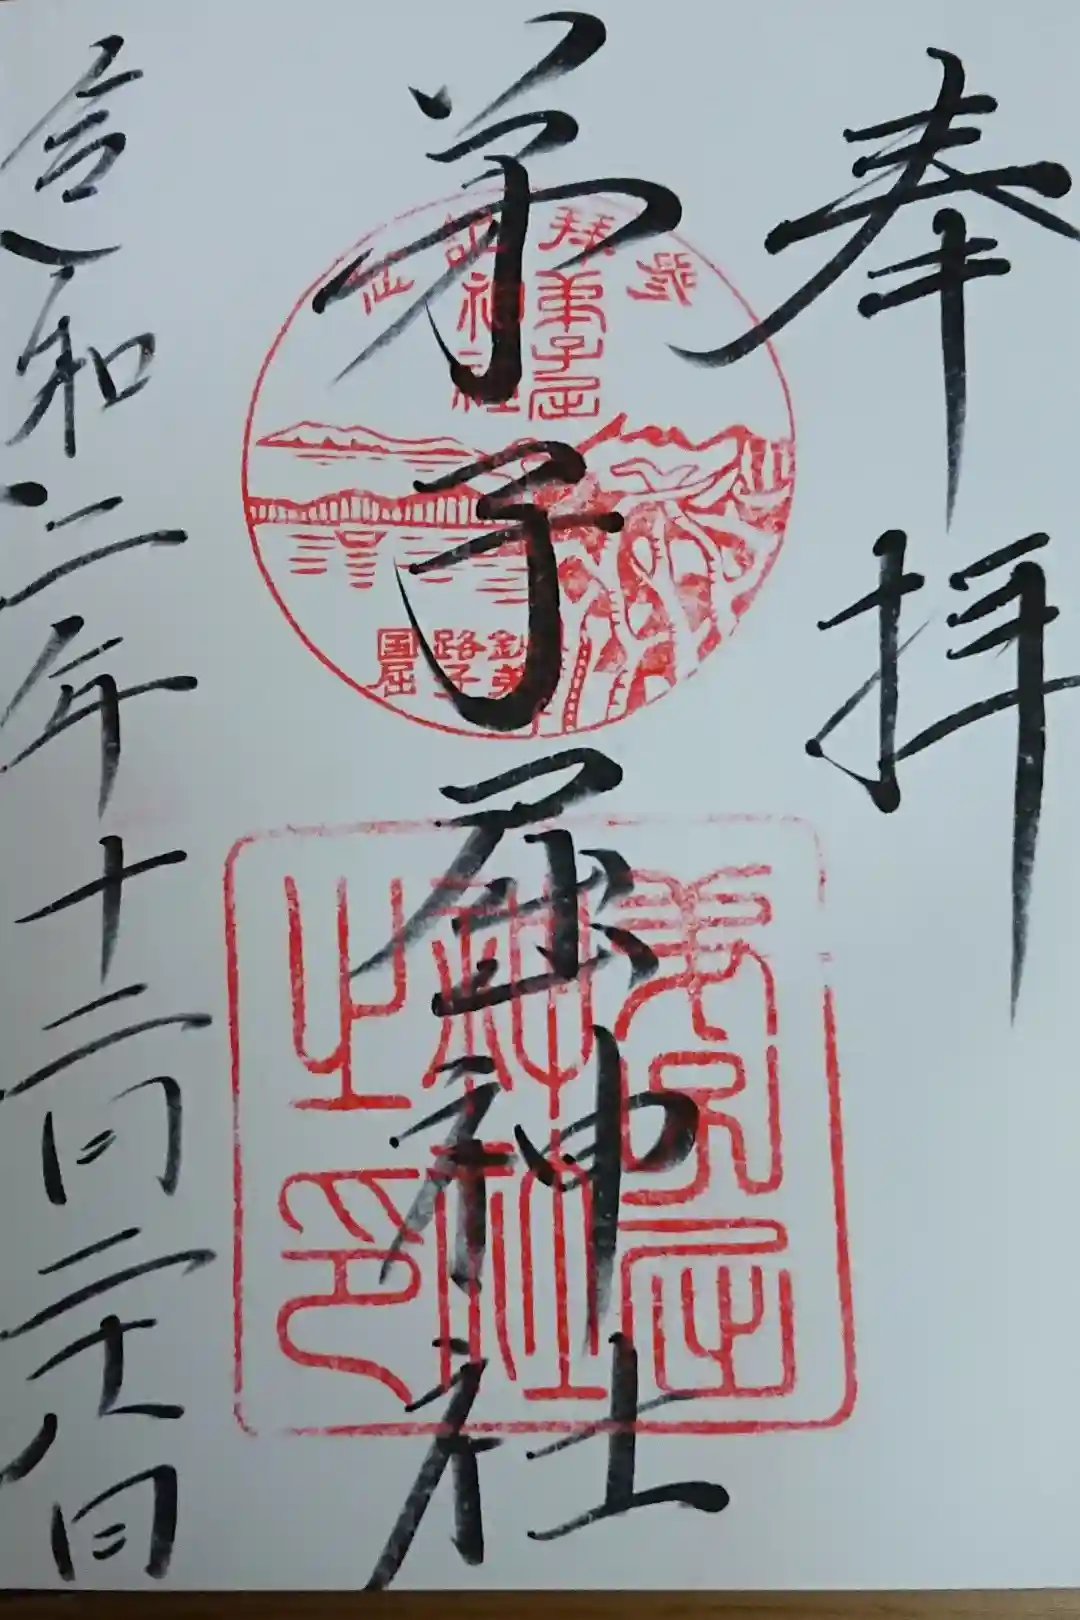 奉拝
弟子屈神社
令和三年十二月二十八日
参拝記念
弟子屈
神社
釧路国
弟子屈
弟子屈
神社
之印